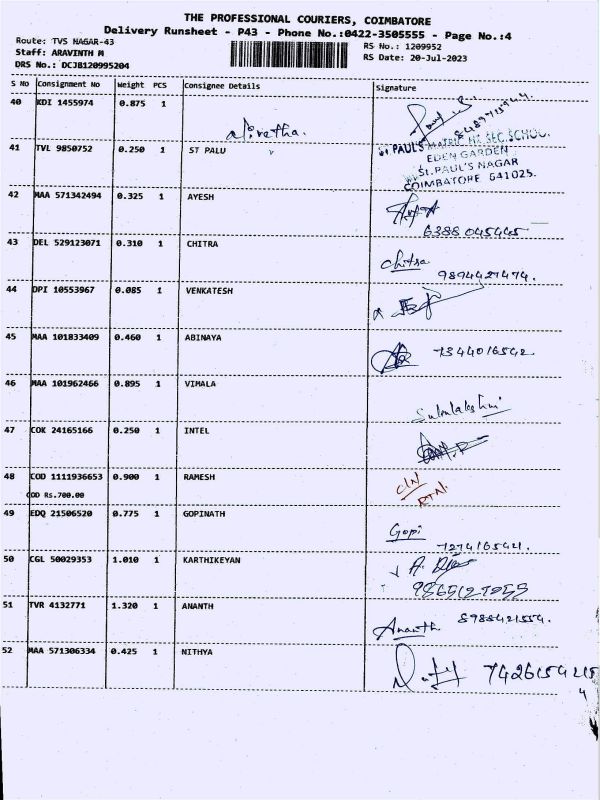 THE PROFESSIONAL COURIERS, COIMBATORE
Delivery Runsheet - P43 - Phone No.:0422-3505555 - Page No.:4
Route: TVS NAGAR-43
Staff: ARAVINTH M
DRS No.: DCJB120995204
RS No.: 1209952
RS Date: 20-Jul-2023
S No Consignment No Weight PCS Consignee Details Signature
40 KDI 1455974 0.875 1
41 TVL 9850752 0.250 1 ST PALU
ST. PAUL'S MATRIC HR SEC SCHOOL
EDEN GARDEN
St. PAUL'S NAGAR
COIMBATORE 641025.
42 MAA 571342494 0.325 1 AYESH
6388045445
43 DEL 529123071 0.310 1 CHITRA
Chitra
9894427474.
44 DPI 10553967 0.085 1 VENKATESH
45 MAA 101833409 0.460 1 ABINAYA
7344016542.
46 MAA 101962466 0.895 1 VIMALA
Subulakshmi
47 COK 24165166 0.250 1 INTEL
48 COD 1111936653 0.900 1 RAMESH
COD RS.700.00
CLN
RTN.
49 EDQ 21506520 0.775 1 GOPINATH
Gopi
7274165421.
50 CGL 50029353 1.010 1 KARTHIKEYAN
51 TVR 4132771 1.320 1 ANANTH
Ananth 8988421554.
52 MAA 571306334 0.425 1 NITHYA